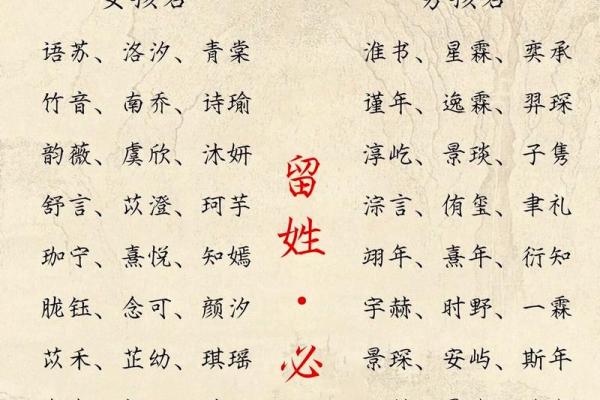 女孩名
男孩名
语苏、洛汐、青棠
竹音、南乔、诗瑜
韵薇、虞欣、沐妍
舒言、苡澄、珂芋
珈宁、熹悦、知嫣
胧钰、念可、颜汐
苡禾、芷幼、琪瑶
留姓·必
淮书、星霖、奕承
谨年、逸霖、羿琛
淳屹、景琰、子隽
淙言、侑玺、聿礼
翊年、熹年、衍知
宇赫、时野、一霖
景琛、安屿、斯年